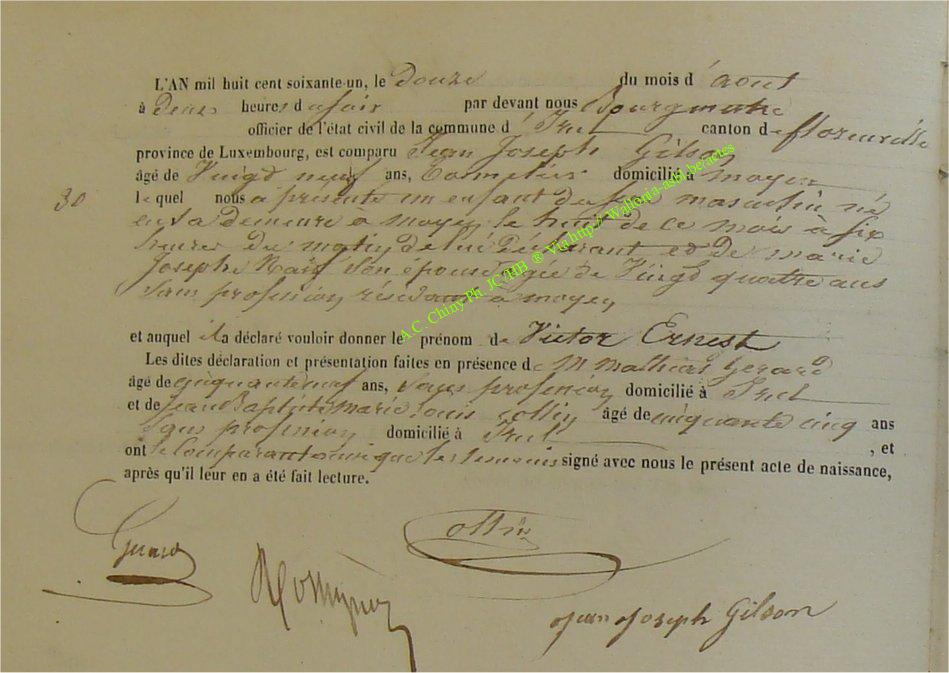 L'AN mil huit cent soixante-un, le Douze du mois d'aout
à Deux heures du soir par devant nous Bourgmestre
officier de l'état civil de la commune d'Izel canton de florenville
province de Luxembourg, est comparu Jean Joseph Gilson
âgé de Vingt neuf ans, domicilié à moyen
30
lequel nous a présenté un enfant du sexe masculin né
en sa demeure a moyen le huit de ce mois à six
heures du matin de lui Déclarant et de marie
Josephe son épouse agée de Vingt quatre ans
sans profession résidant a moyen
et auquel il a déclaré vouloir donner le prénom de Victor Ernest
Les dites déclaration et présentation faites en présence de M Mathias Gerard
âgé de cinquante neuf ans, sans profession domicilié à Izel
et de Jean Baptiste marie louis Collin âgé de cinquante cinq ans
sans profession domicilié à Izel , et
ont le Comparant ainsi que les temoins signé avec nous le présent acte de naissance,
après qu'il leur en a été fait lecture.
Collin
Gerard
Jean Joseph Gilson
A.C. Chiny Ph. JC/BB ® Via http://Wallonia-asbl.be/actes